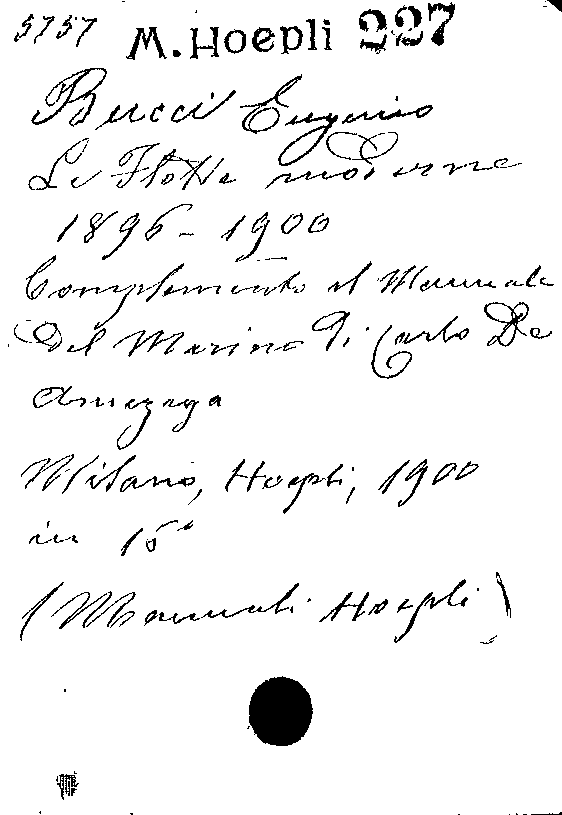 5757 M. Hoepli 227
Bucci Eugenio
Le Flotte moderne
1896-1900
Complemento al Manuale
Del Marino Di Carlo De
Amezaga
Milano, Hoepli, 1900
in 15°
(Manuali Hoepli)